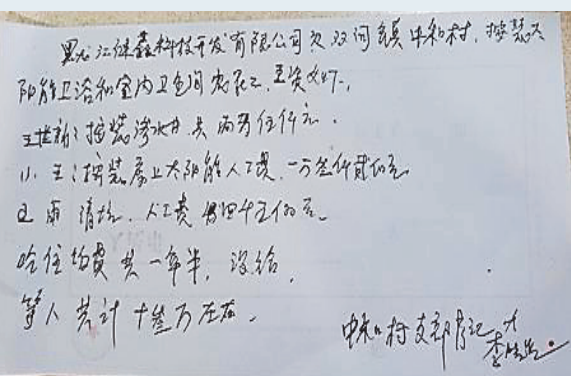 黑龙江 鑫科技开发有限公司欠双河镇中和村，按装太
阳能卫浴和室内卫生间农民工工资如下，
王世新：按装渗水井 共 两万任仟元．
小 王：按装房上太阳能人工费，一万叁仟贰佰元
人工费 四千五佰元
吃住均费共一年半，没给，
等人共计十叁万左右．
中和村支部书记
李